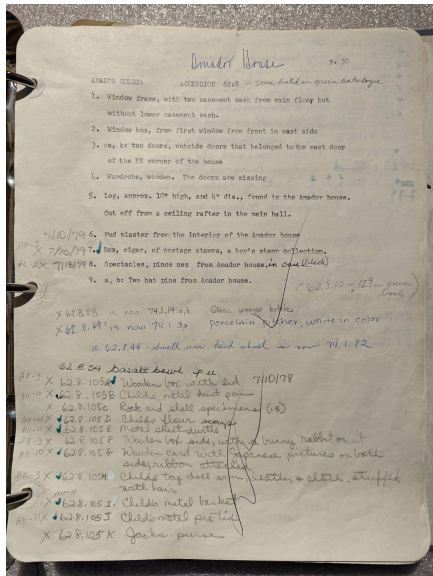 Amador House p. 30
AMADOR HOUSE: ACCESSION 62:8 - some listed in green catalogue
1. Window frame, with two casement sash from main floor but
without lower casement sash.
2. Window box, from first window from front in east side
3. a, b: two doors, outside doors that belonged to the east door
of the NE corner of the house
4. Wardrobe, wooden. The doors are missing
5. Log, approx. 10" high, and 4" dia., found in the Amador house.
Cut off from a ceiling rafter in the main hall.
7/10/79 6. Mud plaster from the interior of the Amador house
X 7/10/79 7. Box, cigar, of postage stamps, a boy's stamp collection.
X 7/10/79 8. Spectacles, pince nez from Amador house. in case (black)
9. a, b: Two hat pins from Amador house.
(62.8.10 - 129 in green book)
X 62.8.23 is now 74.1.14 a,b Glass
X 62.8.69 is now 74.1.3a porcelain pitcher, white in color
10. 62.8.44 - small iron is now 74.1.82
62.8.54 basalt bowl
A11-3 X 62.8.105A Wooden box with lid 7/10/79
X 62.8.105B Childs metal dust pan
X 62.8.105C Rock and shell specimens (15)
X 62.8.105D Childs flour scoop
X 62.8.105E Metal skeet turtle
A11-3 X 62.8.105F Wooden box side, with a bunny rabbit on it
A11-10 X 62.8.105G Wooden card with Japanese pictures on both
sides, ribbon attached
X 62.8.105H Childs toy doll arm leather & cloth, stuffed
with hair
X 62.8.105I Childs metal basket
A11-11 X 62.8.105J Childs metal pie tin
X 62.8.105K Jacks purse